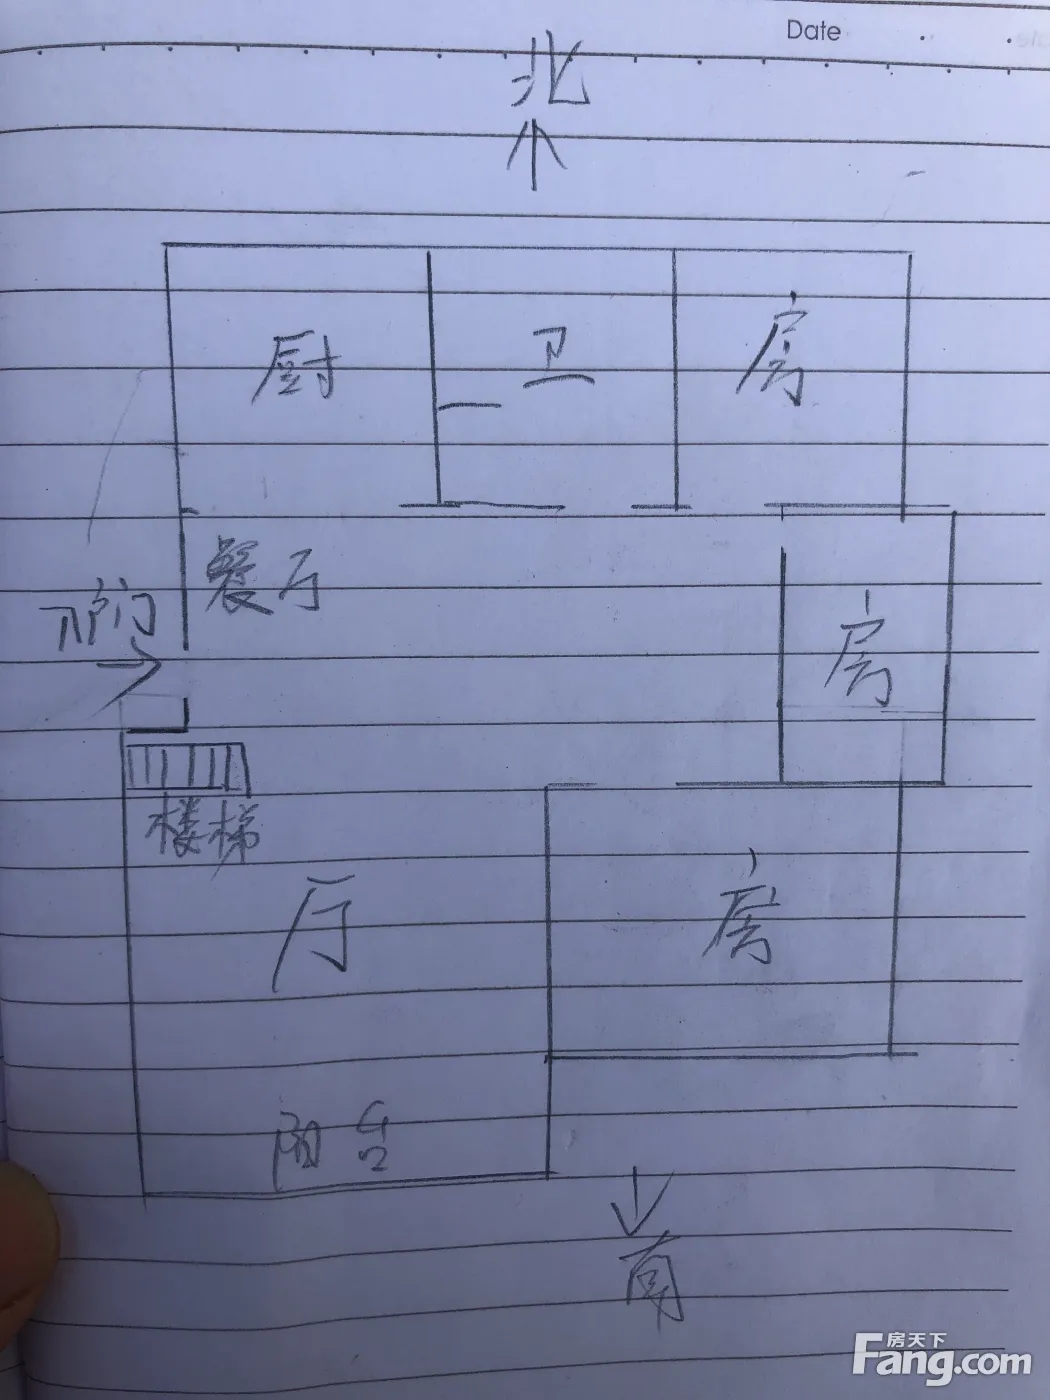 Date
北
厨
卫
房
餐厅
入户门
房
楼梯
厅
房
阳台
南
房天下
Fang.com